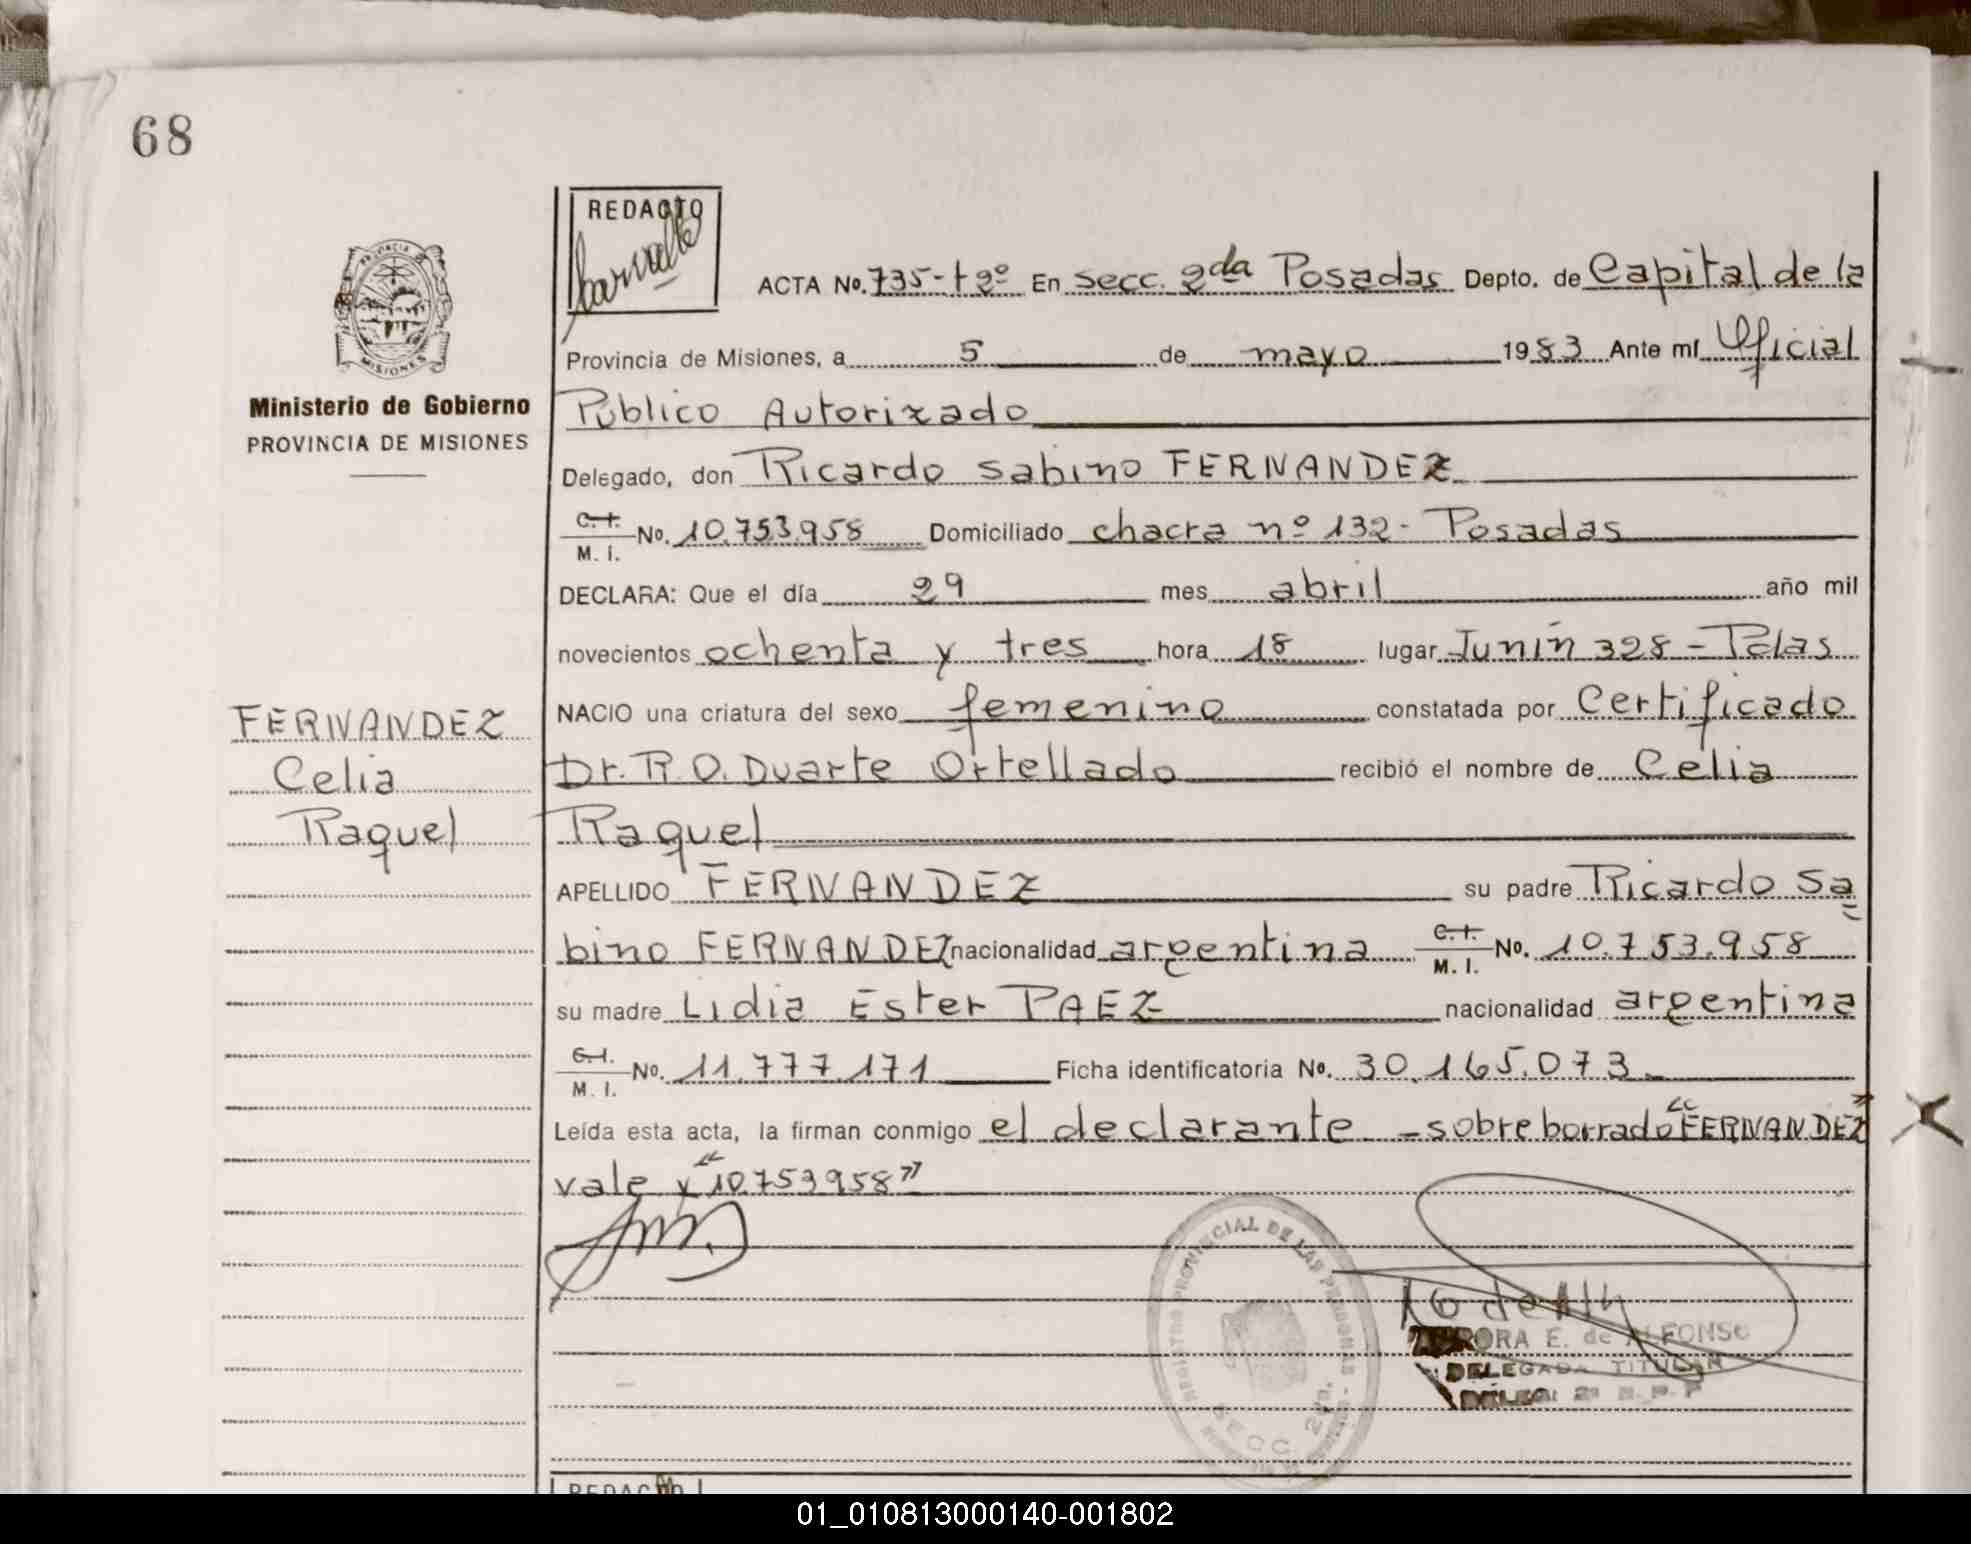 68
REDACTO
PROVINCIA DE MISIONES
Ministerio de Gobierno
PROVINCIA DE MISIONES
ACTA No. 735-tº2º En secc. 2da Posadas Depto. de Capital de la
Provincia de Misiones, a 5 de mayo 1983 Ante mí Oficial
Público Autorizado
Delegado, don Ricardo Sabino FERNANDEZ
C.I. M.I. No. 10.753.958 Domiciliado chacra nº 132 - Posadas
DECLARA: Que el día 29 mes abril año mil
novecientos ochenta y tres hora 18 lugar Junín 328 - Pdas
NACIO una criatura del sexo femenino constatada por Certificado
Dr. R.O. Duarte Ortellado recibió el nombre de Celia
Raquel
APELLIDO FERNANDEZ su padre Ricardo Sa
bino FERNANDEZ nacionalidad argentina C.I. M.I. No. 10.753.958
su madre Lidia Ester PAEZ nacionalidad argentina
C.I. M.I. No. 11.777.171 Ficha identificatoria No. 30.165.073
Leída esta acta, la firman conmigo el declarante - sobreborrado "FERNANDEZ"
vale y "10.753.958"
FERNANDEZ
Celia
Raquel
REGISTRO PROVINCIAL DE LAS PERSONAS
SECC. 2da.
AURORA E. de ALFONSO
DELEGADA TITULAR
DELEG. 2ª R.P.P
REDACTO
01_010813000140-001802